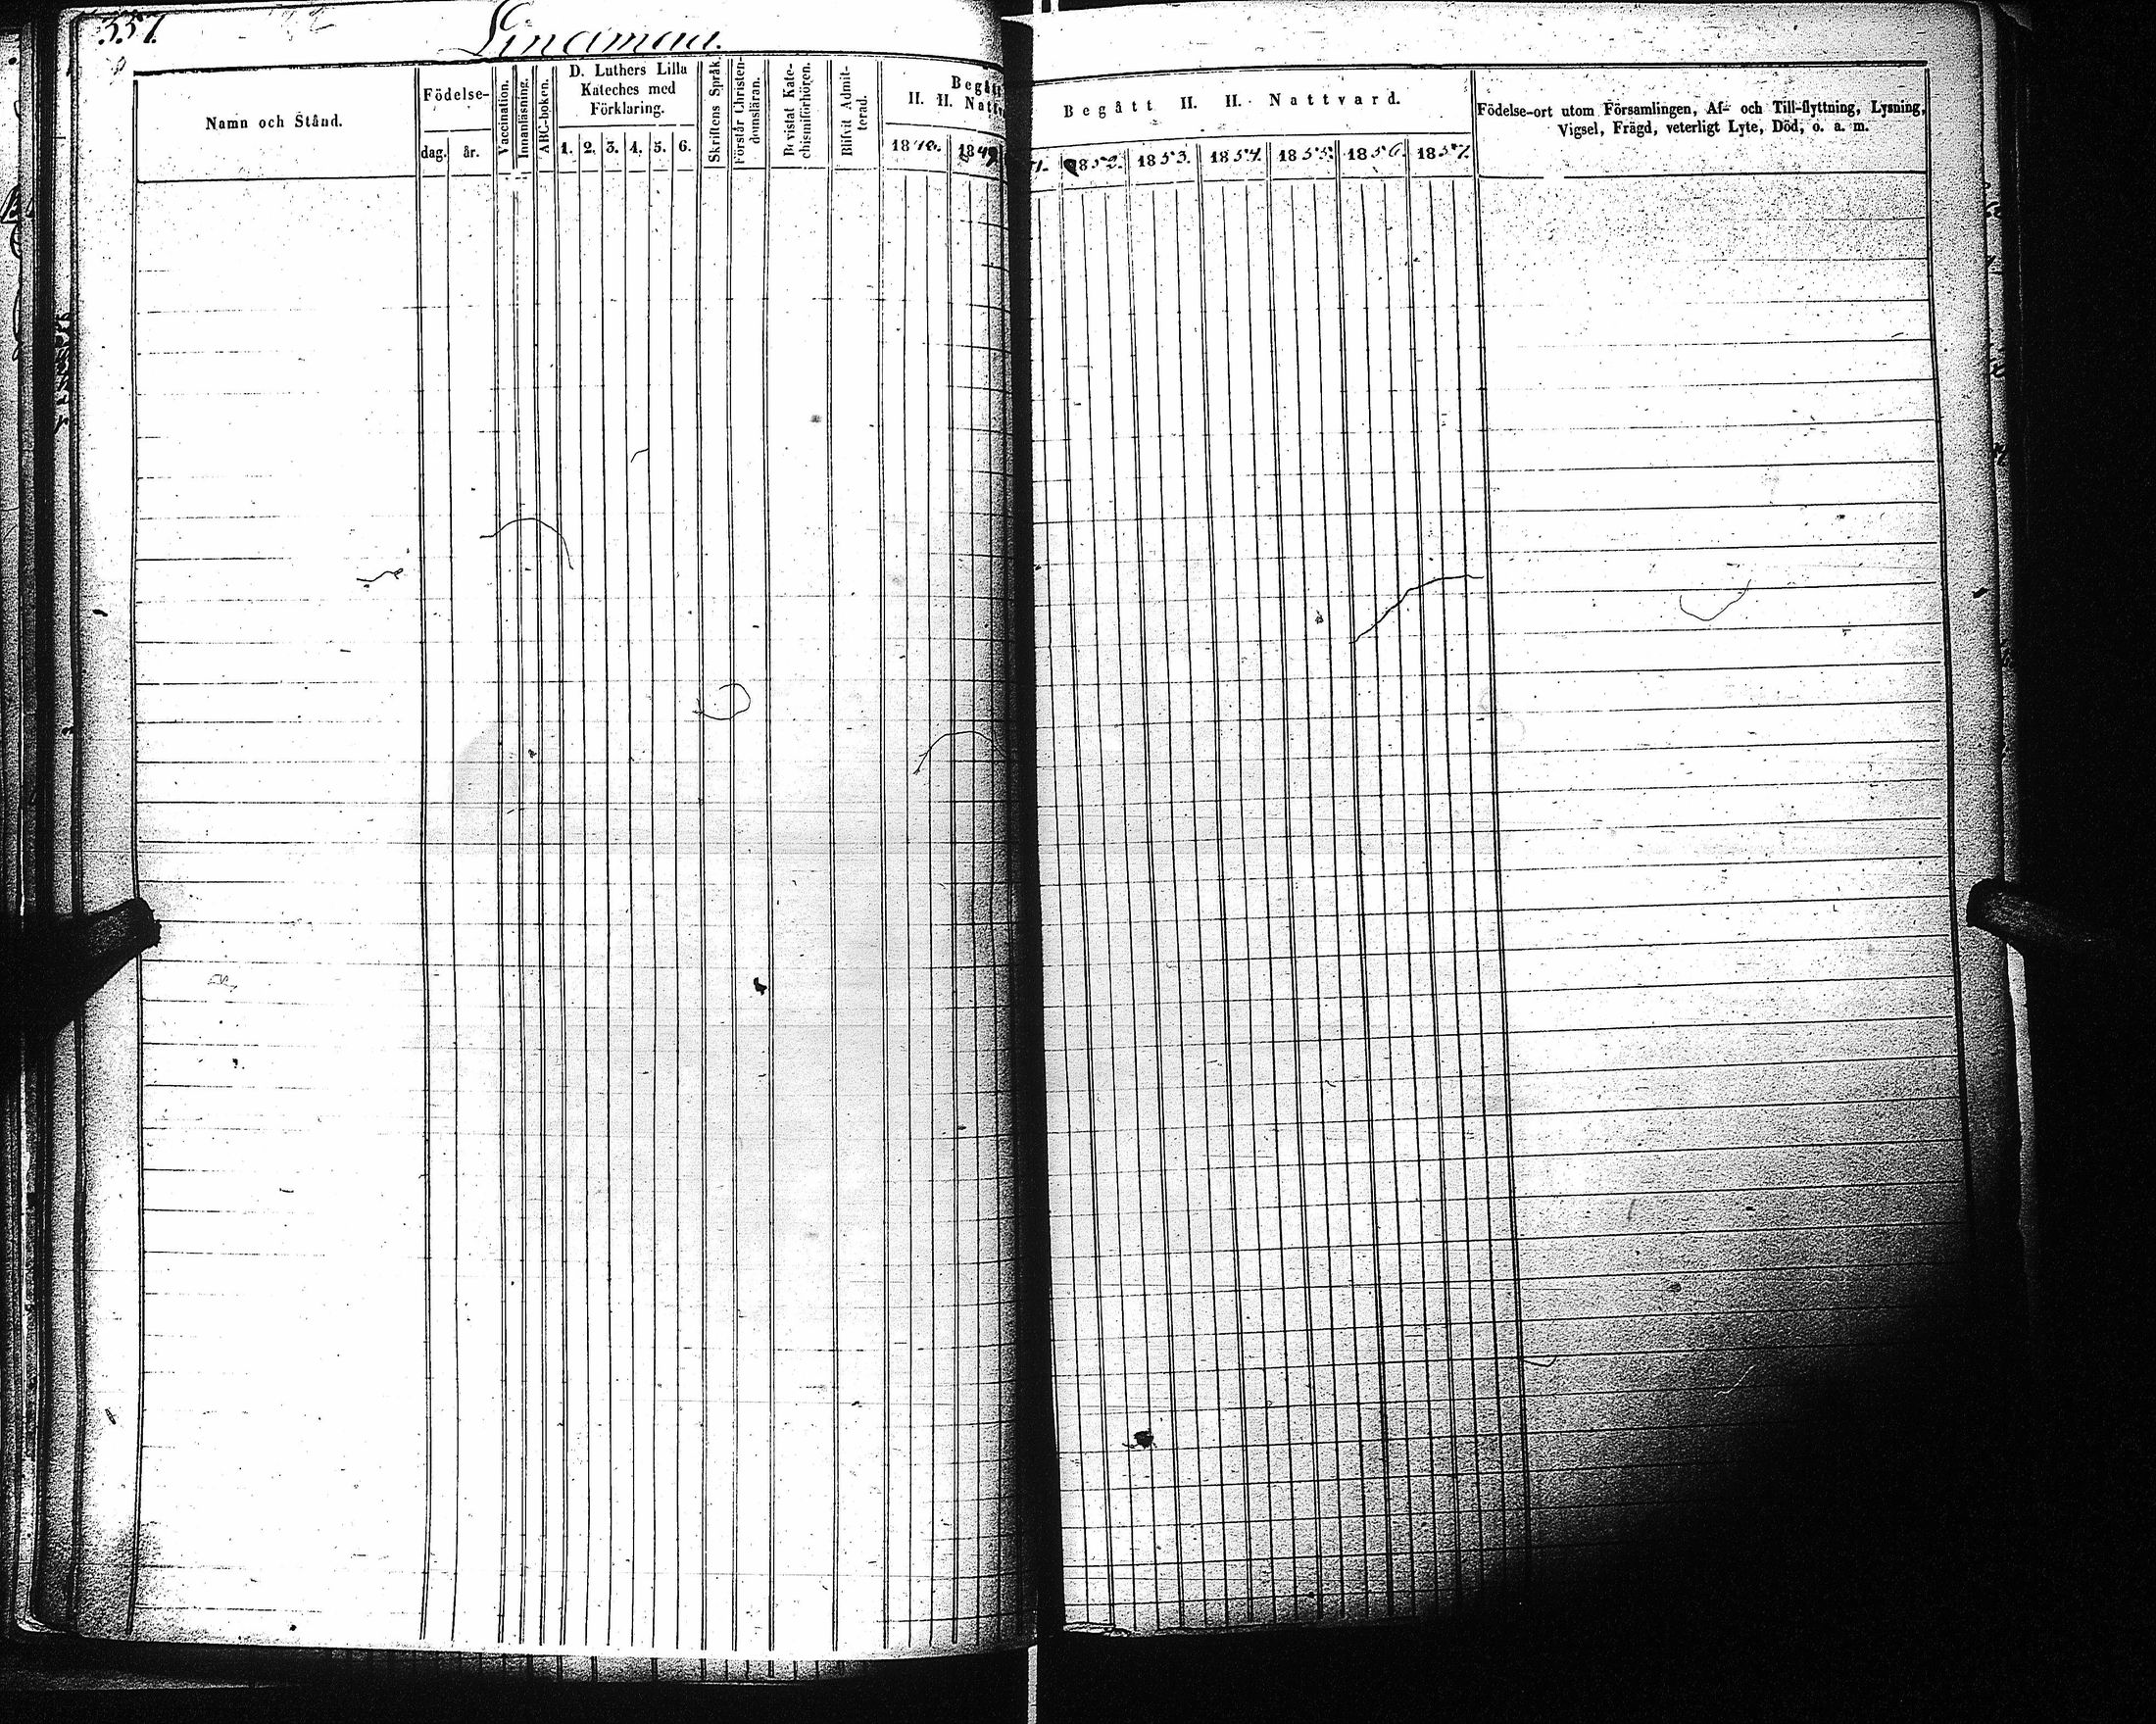 337.
Linamaa.
Namn och Stånd.
Födelse-
dag.
år.
Vaccination.
Innanläsning.
ABC-boken.
D. Luthers Lilla
Kateches med
Förklaring.
1. 2. 3. 4. 5. 6.
Skriftens Språk.
Förstår Christen-
domsläran.
Bevistat Kate-
chismiförhören.
Blifvit Admit-
terad.
Begått
H. H. Nattv
1848. 1849
Begått H. H. Nattvard.
1. 1852. 1853. 1854. 1855. 1856. 1857.
Födelse-ort utom Församlingen, Af- och Till-flyttning, Lysning,
Vigsel, Frägd, veterligt Lyte, Död, o. a. m.